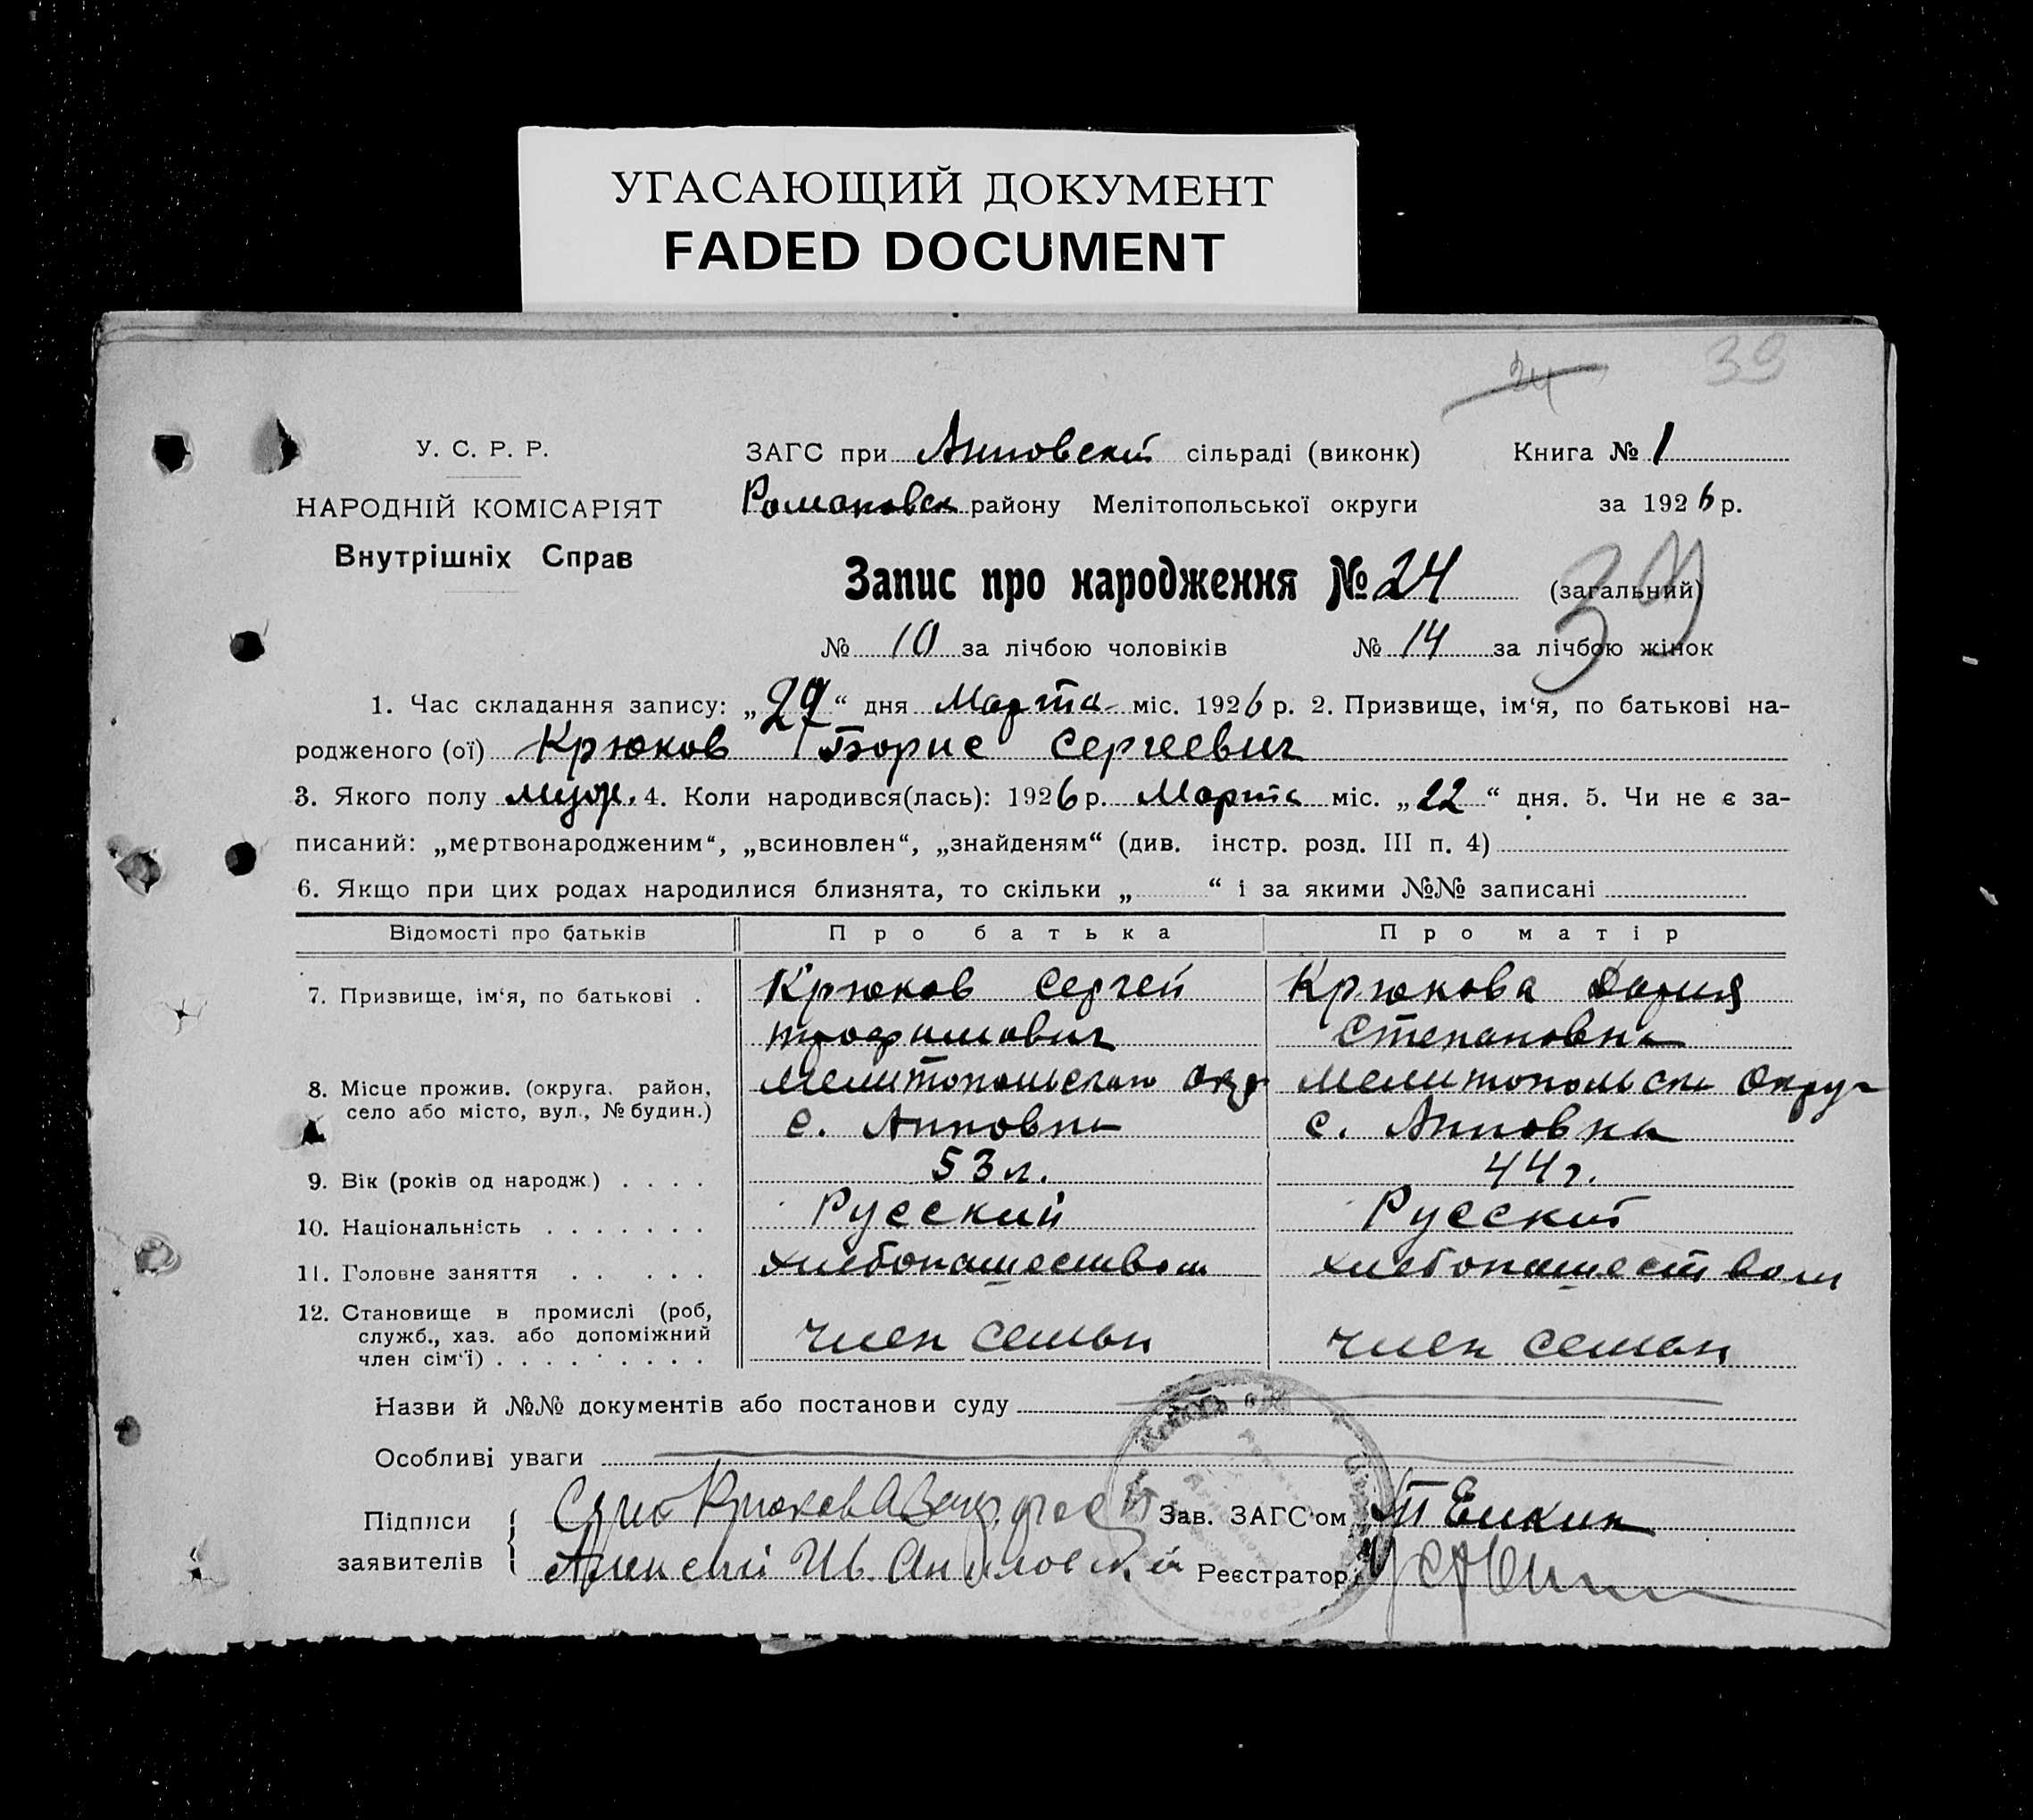 УГАСАЮЩИЙ ДОКУМЕНТ
FADED DOCUMENT
24
39
У. С. Р. Р.
НАРОДНІЙ КОМІСАРІЯТ
Внутрішніх Справ
ЗАГС при Анновский сільраді (виконк) Книга № 1
Романовск району Мелітопольської округи за 1926 р.
Запис про народження № 24 (загальний)
№ 10 за лічбою чоловіків № 14 за лічбою жінок
39
1. Час складання запису: „29“ дня Марта міс. 1926 р. 2. Призвище, ім‘я, по батькові на-
родженого (ої) Крюков Борис Сергеевич
3. Якого полу муж. 4. Коли народився(лась): 1926 р. Марта міс. „22“ дня. 5. Чи не є за-
писаний: „мертвонародженим“, „всиновлен“, „знайденям“ (див. інстр. розд. III п. 4)
6. Якщо при цих родах народилися близнята, то скільки „ “ і за якими №№ записані
Відомості про батьків Про батька Про матір
7. Призвище, ім‘я, по батькові . Крюков Сергей Крюкова Дария
трофимович Степановна
8. Місце прожив. (округа, район, Мелитопольского окр Мелитопольск округ
село або місто, вул., № будин.) с. Анновка с. Анновка
9. Вік (років од народж.) . . . . 53 л. 44 г.
10. Національність . . . . . . . Русский Русский
11. Головне заняття . . . . . хлебопашеством хлебопашеством
12. Становище в промислі (роб,
служб., хаз. або допоміжний член семьи член семьи
член сім‘ї) . . . . . . . . .
Назви й №№ документів або постанови суду
Особливі уваги
Підписи Крюков Зав. ЗАГС‘ом
заявителів Алексей Ив. Реєстратор